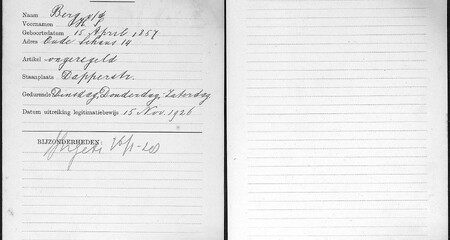 Naam Berg v/d
Voornamen K J
Geboortedatum 15 April 1857
Adres Oude Schans 14
Artikel ongeregeld
Staanplaats Dapperstr.
Gedurende Dinsdag, Donderdag, Zaterdag
Datum uitreiking legitimatiebewijs 15 Nov. 1926
BIJZONDERHEDEN: